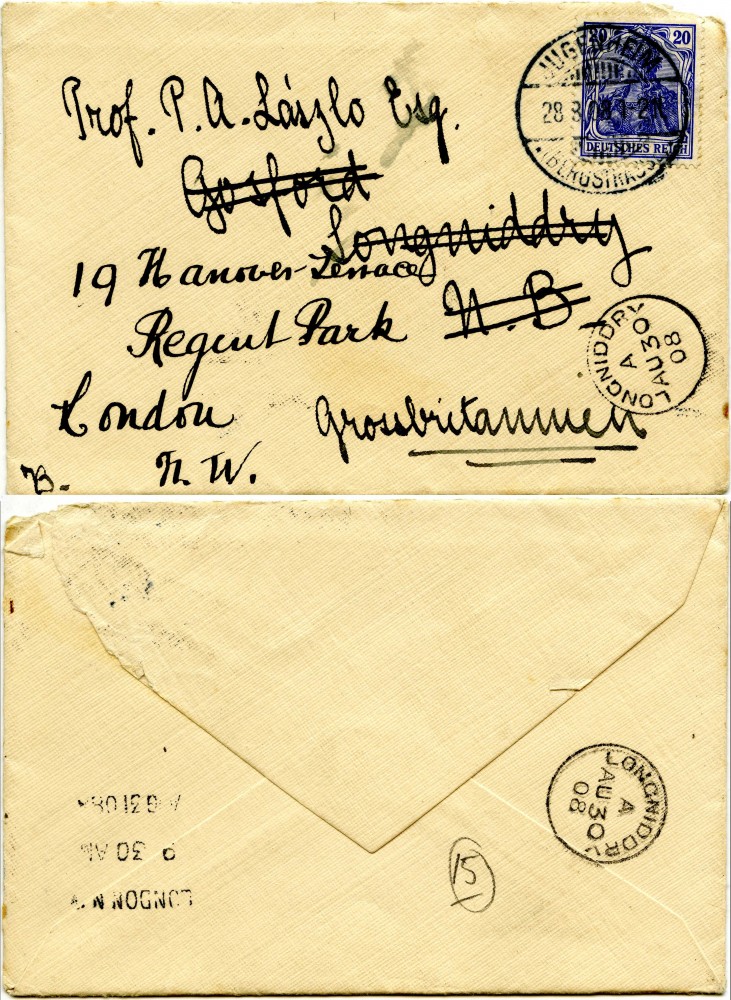 Prof. P. A. László Esq.
Gosford
Longniddry
19 Hanover Terrace
Regent Park N.B.
London Grossbritannien
N.W.
B.
20 20
DEUTSCHES REICH
JUGENHEIM
28 8 08 1-2N
(BERGSTRASSE)
LONGNIDDRY
A
AU 30
08
LONGNIDDRY
A
AU 30
08
15
LONDON N.W
30 AM
AUG 31 08